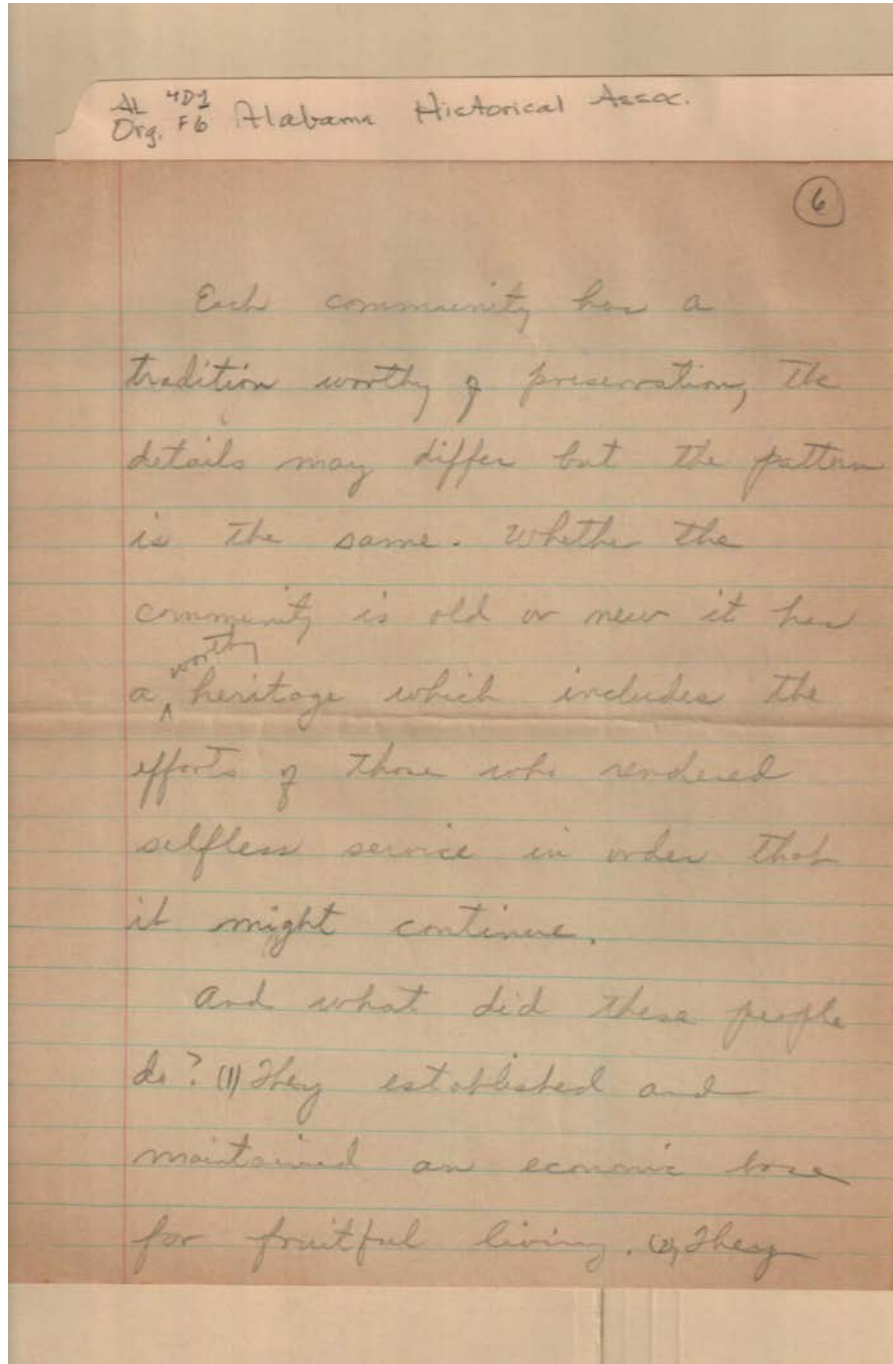 AL 4D1
Org. F6 Alabama Historical Assoc.
6
Each community has a
tradition worthy of preservation, the
details may differ but the pattern
is the same. Whether the
community is old or new it has
worthy
a ^ heritage which includes the
efforts of those who rendered
selfless service in order that
it might continue.
And what did these people
do? (1) They established and
maintained an economic base
for fruitful living. (2) They